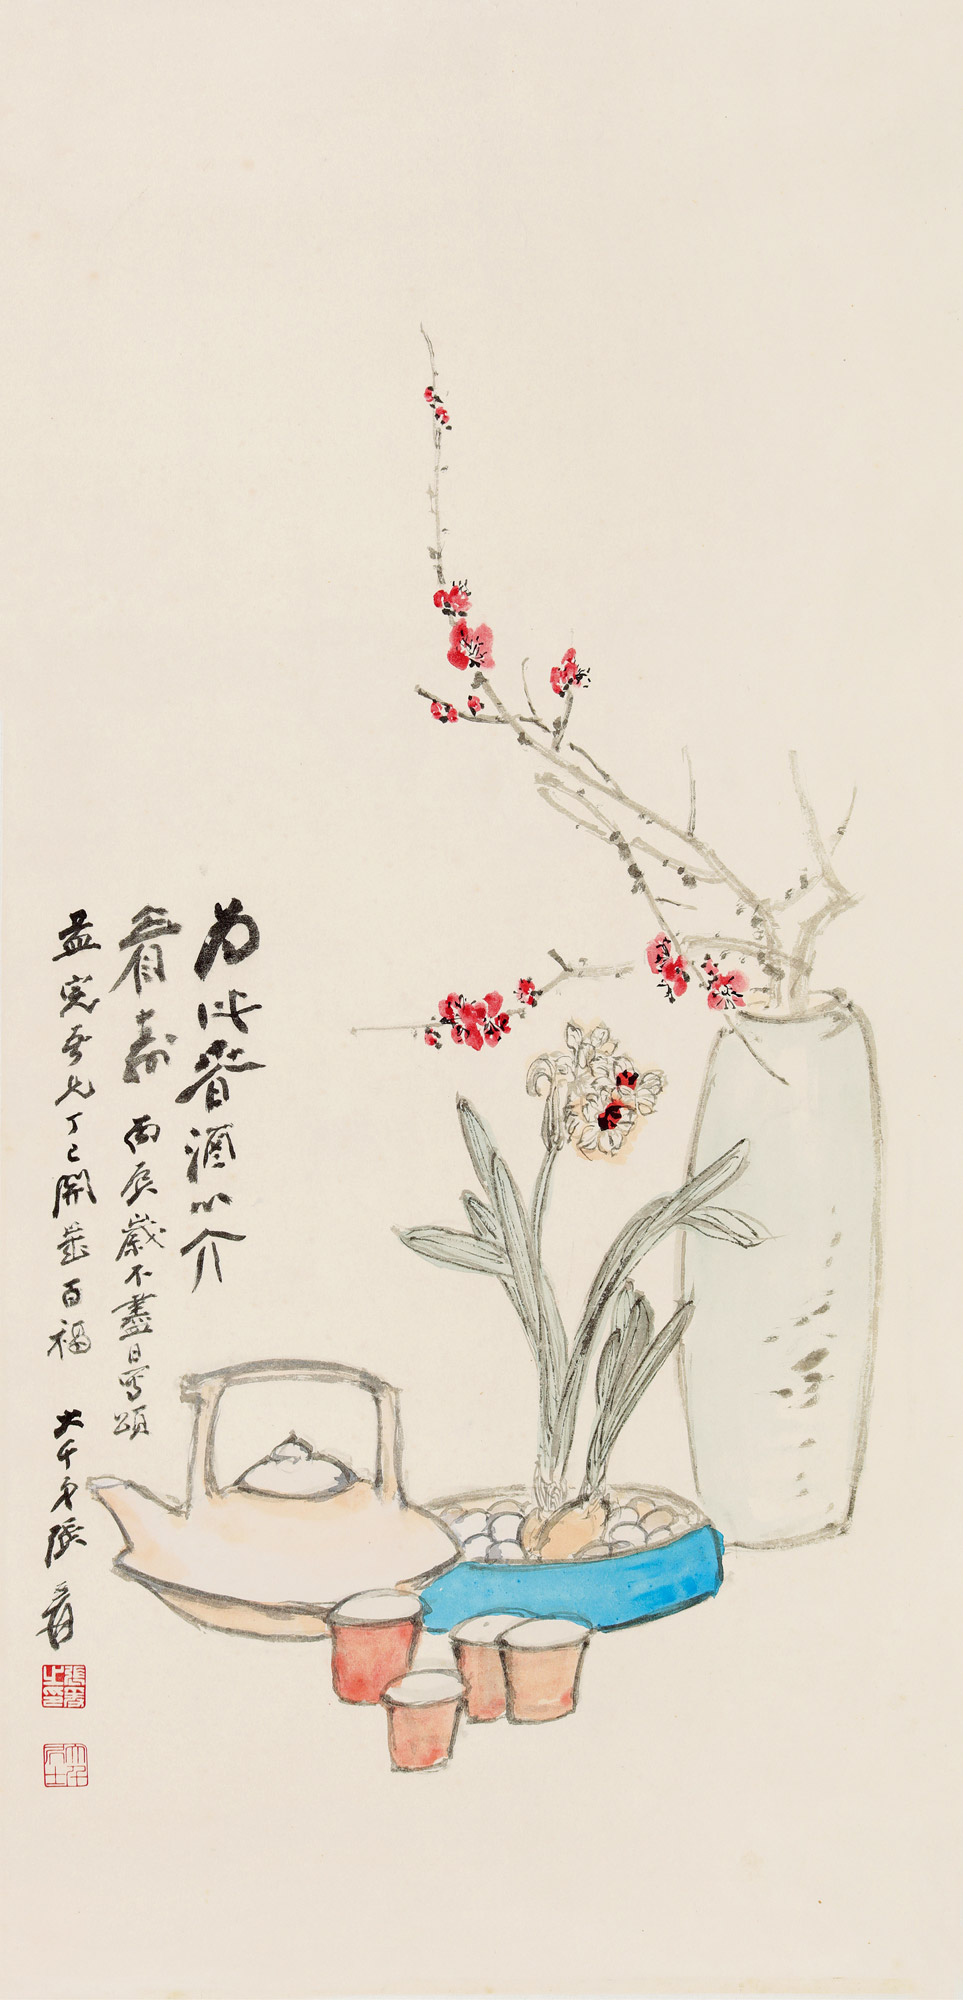 為此春酒以介
眉壽 丙辰歲不盡日寫頌
吾兄丁巳開歲百福 大千弟張爰
張爰之印
大千居士